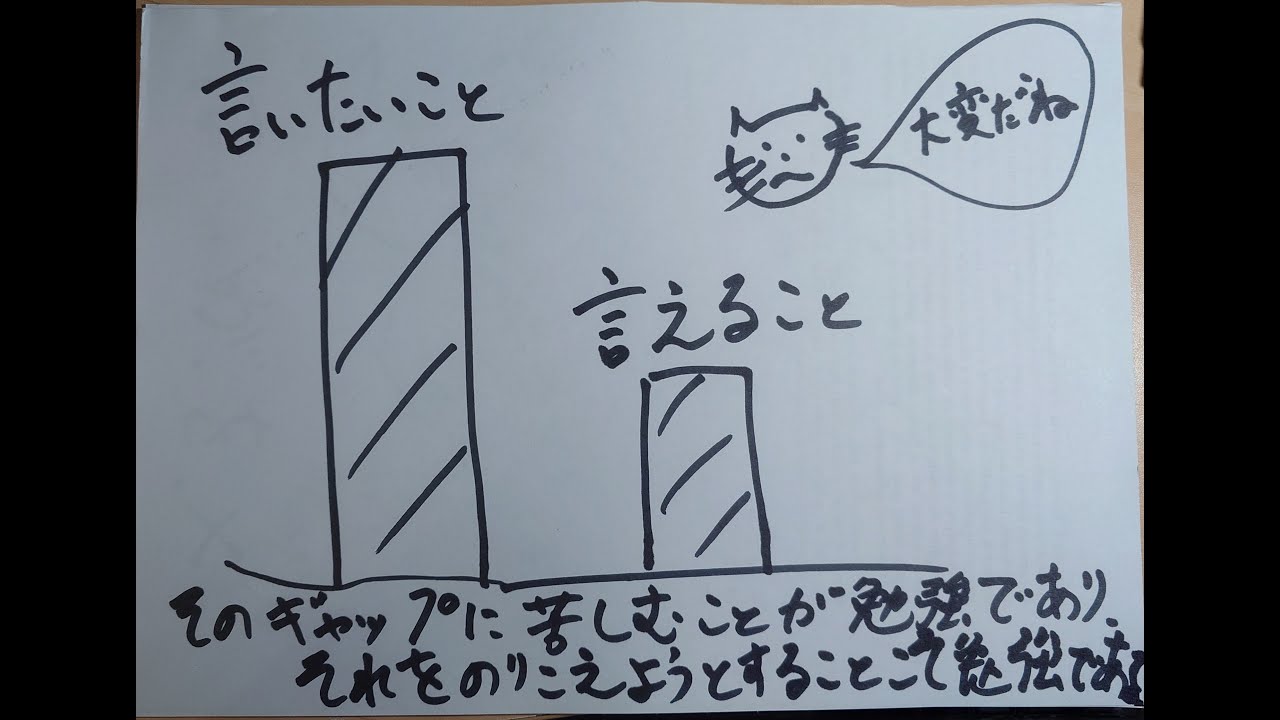 言いたいこと
大変だね
言えること
そのギャップに苦しむことが勉強であり、
それをのりこえようとすることこそ勉強である